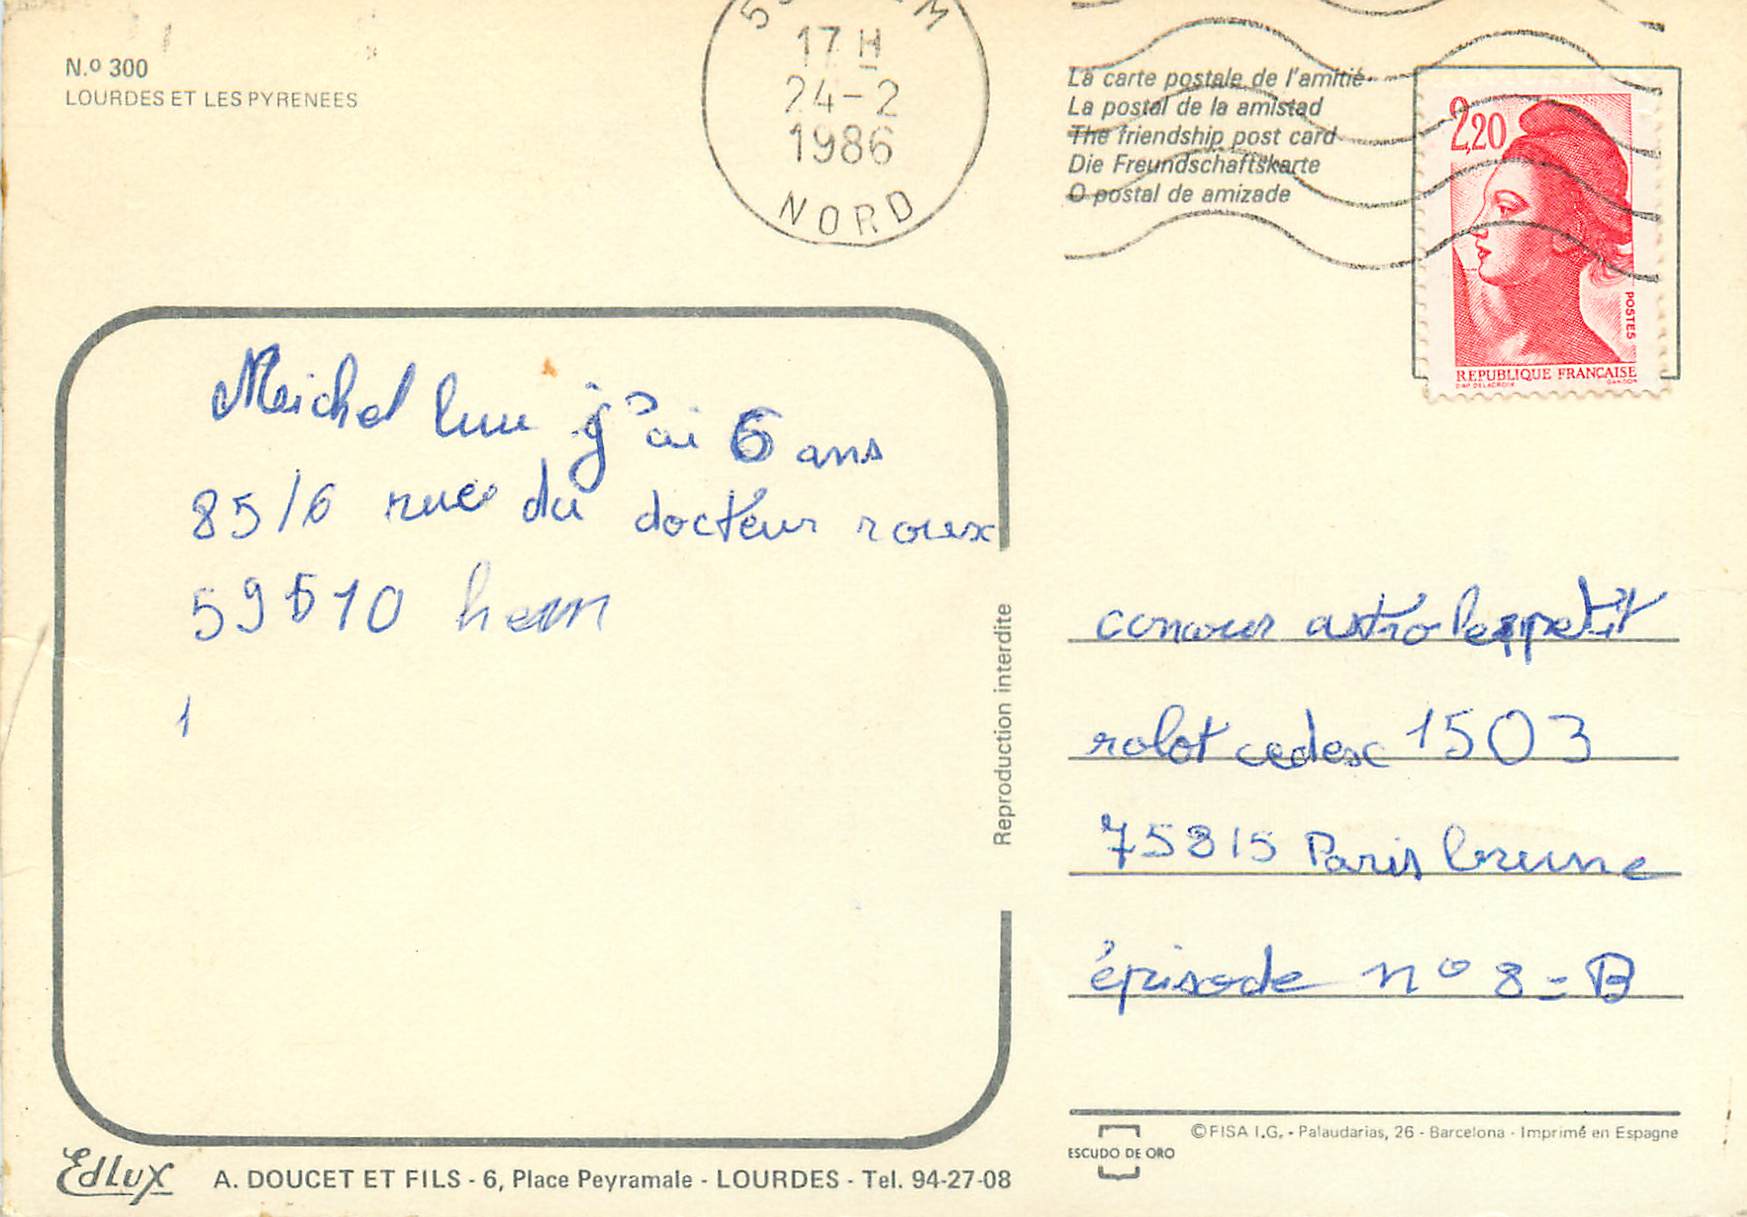 N.º 300
LOURDES ET LES PYRENEES
17 H
24-2
1986
NORD
La carte postale de l'amitié
La postal de la amistad
The friendship post card
Die Freundschaftskarte
O postal de amizade
2,20
POSTES
REPUBLIQUE FRANÇAISE
D'AP. DELACROIX GANDON
Meichel luu j'ai 6 ans
85/6 rue du docteur roux
59510 hem
1
Reproduction interdite
concour astro le petit
robot cedex 1503
75815 Paris brune
épisode nº 8 = B
EdLux
A. DOUCET ET FILS - 6, Place Peyramale - LOURDES - Tel. 94-27-08
ESCUDO DE ORO
© FISA I.G. - Palaudarias, 26 - Barcelona - Imprimé en Espagne